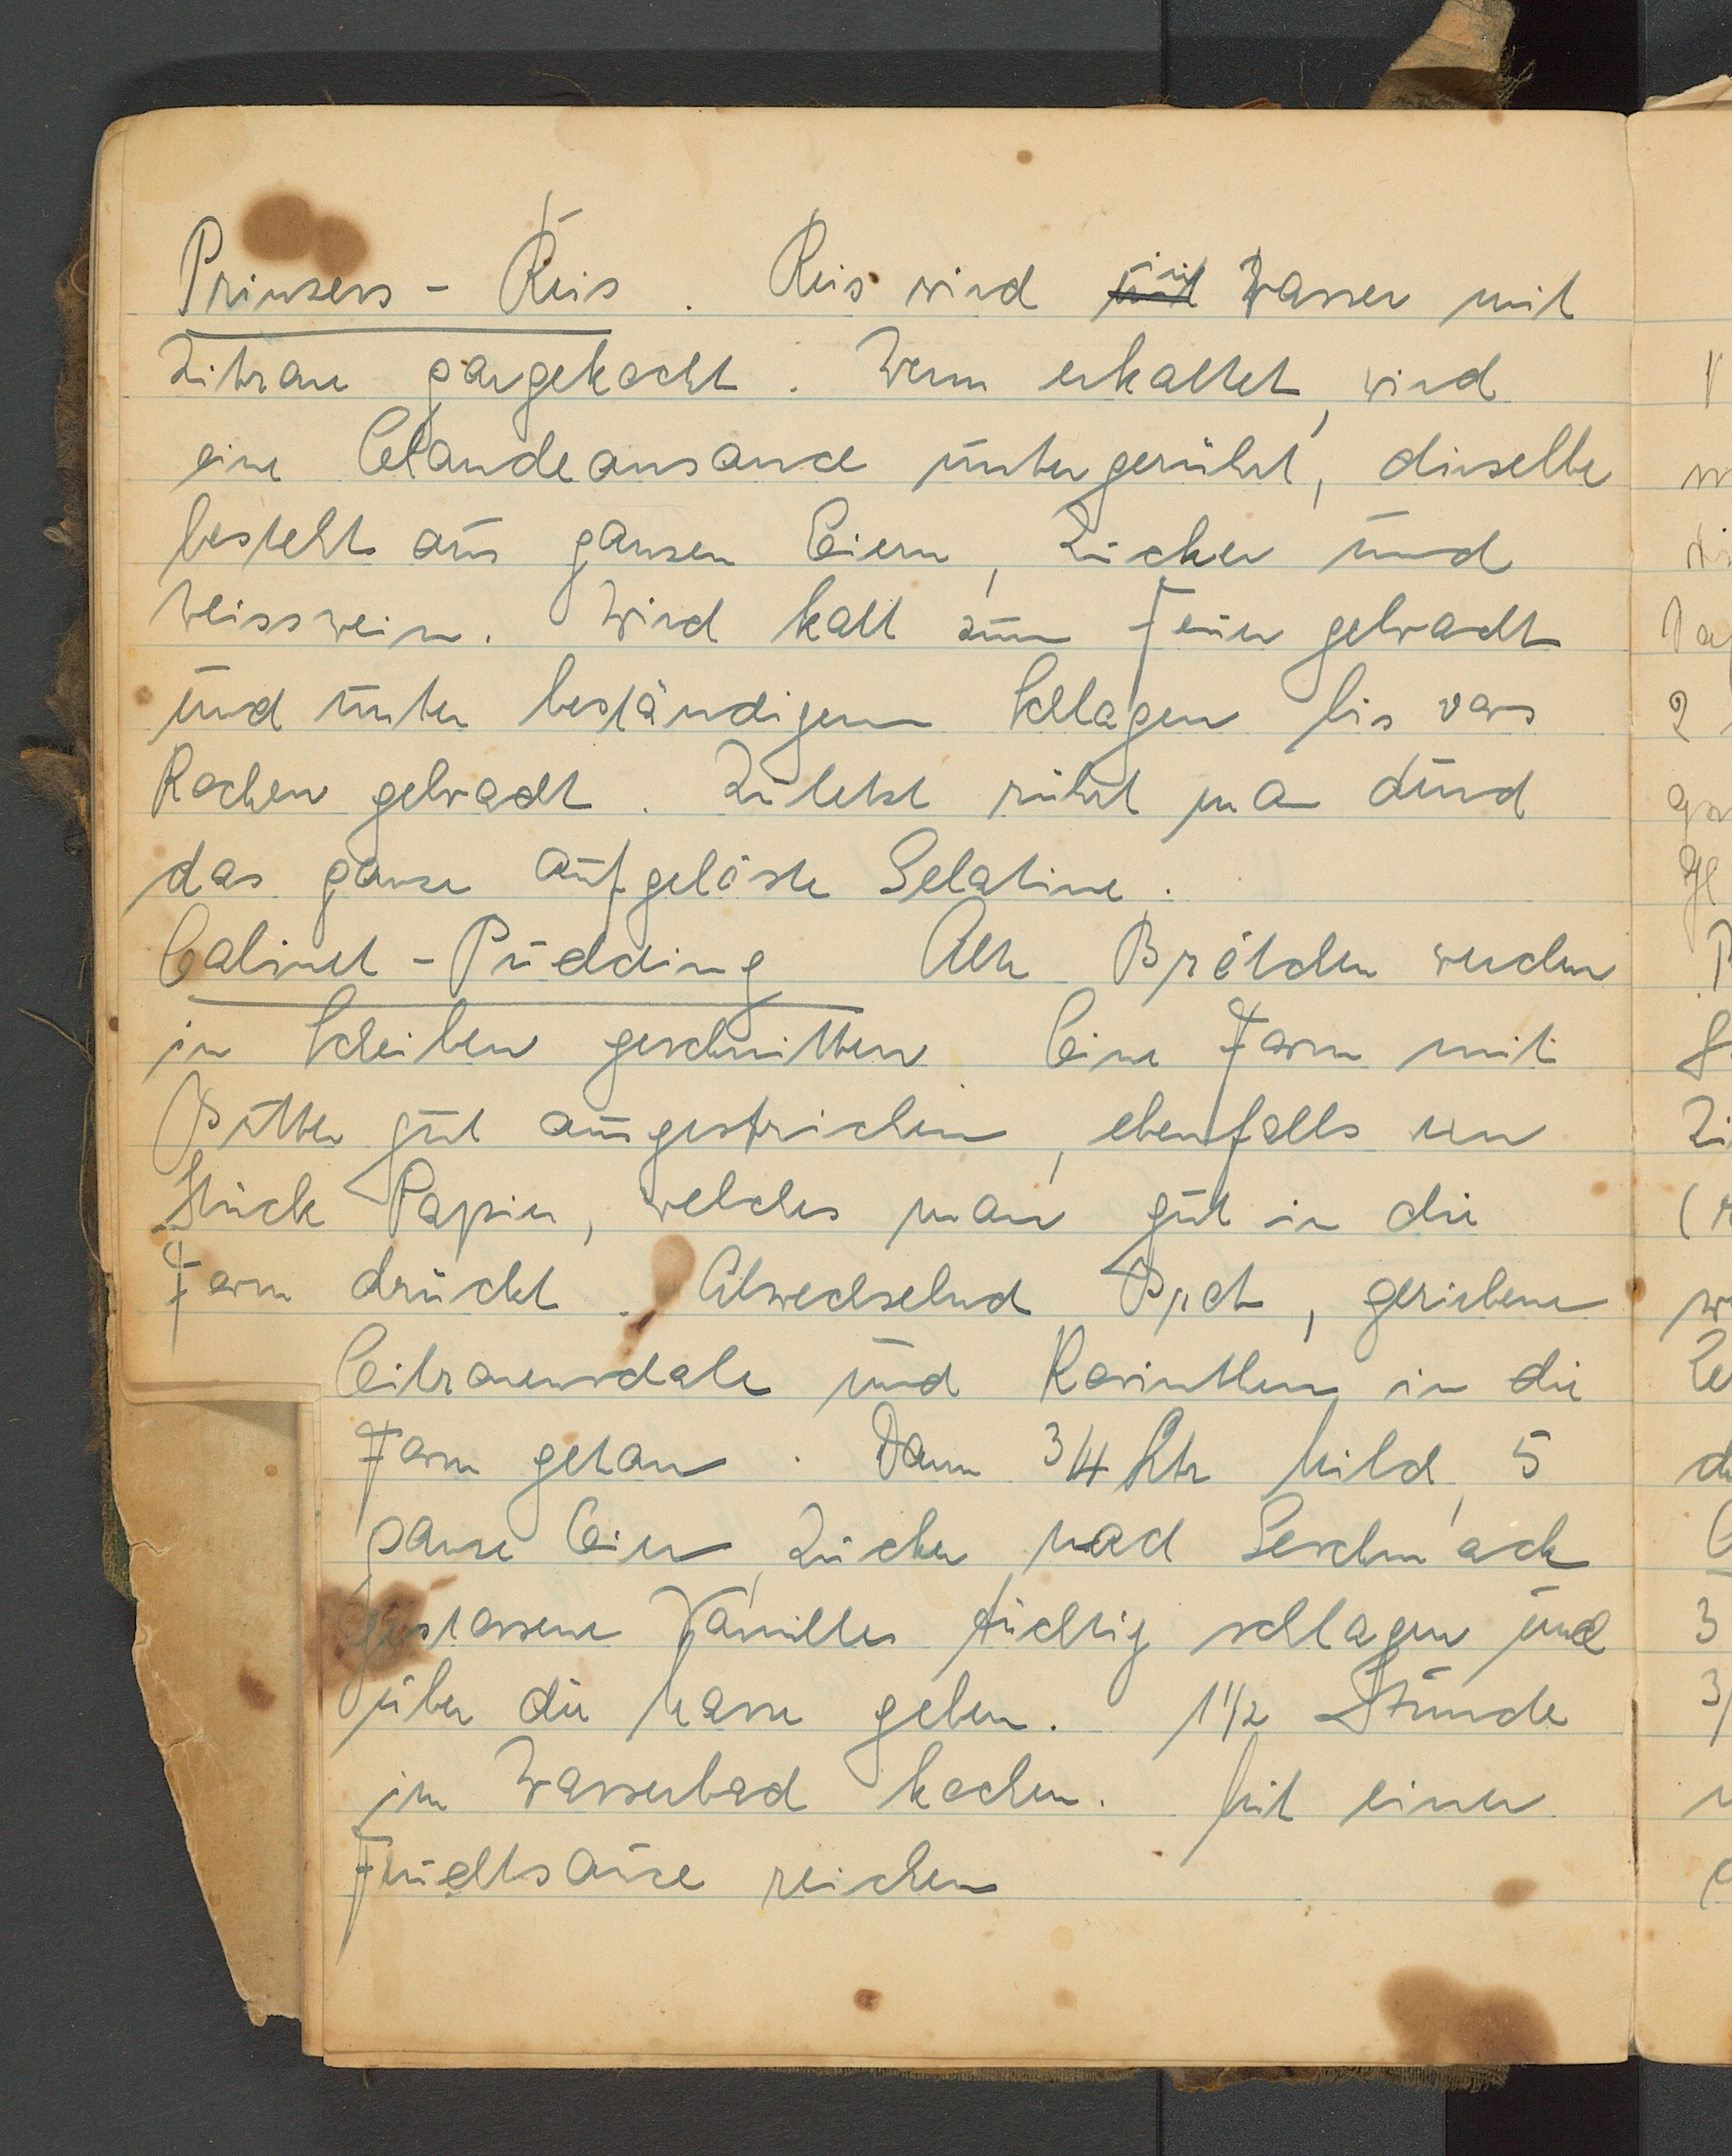 Prinzess-Reis. Reis wird mit in Wasser mit
Zitrone gargekocht. Wenn erkaltet, wird
eine Chaudeausauce untergerührt, dieselbe
besteht aus ganzen Eiern, Zucker und
Weisswein. Wird kalt zum Feuer gebracht
und unter beständigem Schlagen bis vors
Kochen gebracht. Zuletzt rührt man durch
das ganze aufgelöste Gelatine.
Cabinet-Pudding Alte Brötchen werden
in Scheiben geschnitten Eine Form mit
Butter gut ausgestrichen, ebenfalls ein
Stück Papier, welches man gut in die
Form drückt. Abwechselnd Brot, geriebene
Citronenschale und Korinthen in die
Form getan. Dann 3/4 Ltr Milch, 5
ganze Eier, Zucker, nach Geschmack
gestossene Vanille tüchtig schlagen und
über die Masse geben. 1 1/2 Stunde
im Wasserbad kochen. Mit einer
Fruchtsauce reichen